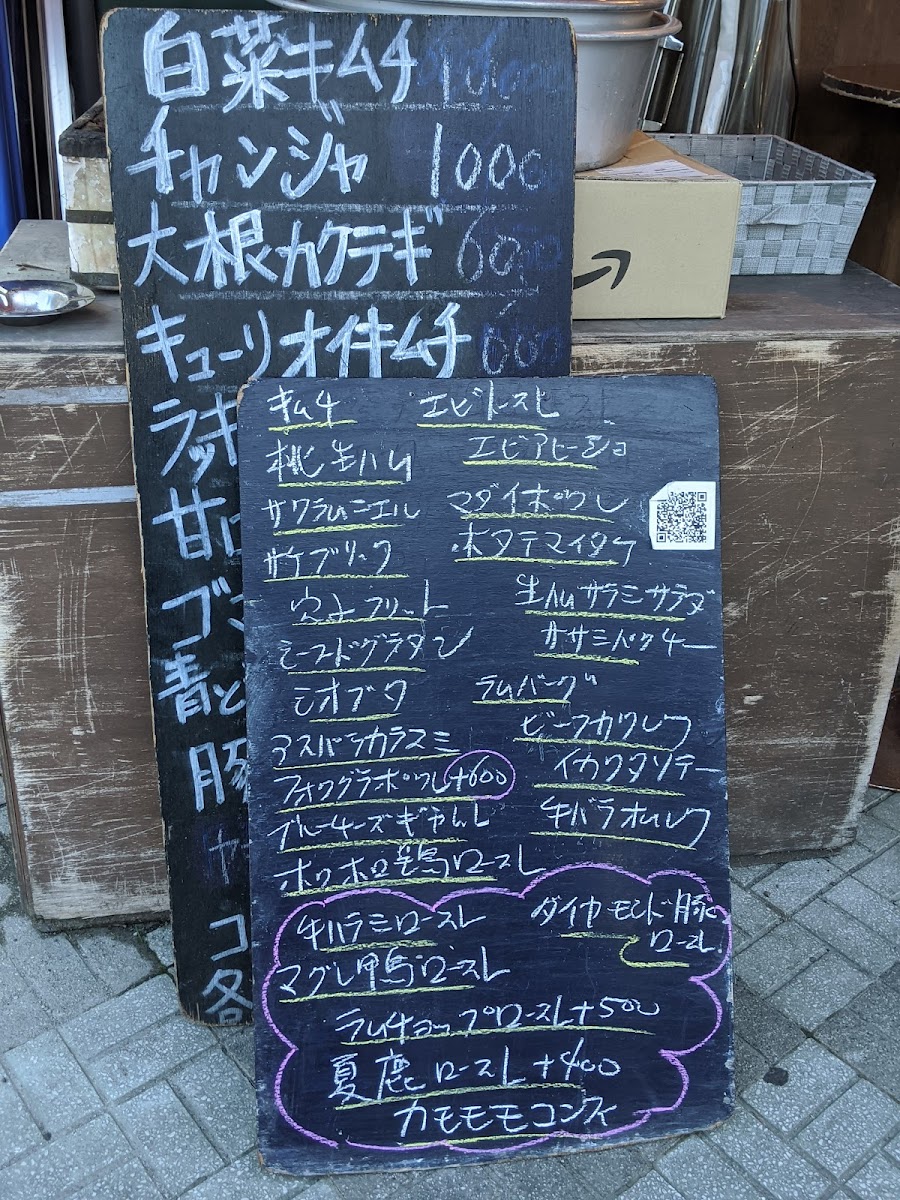 白菜キムチ
チャンジャ 1000
大根カクテギ 600
キューリオイキムチ 600
ラッキ
ゴマ
青と
豚
コ
各
キムチ
桃生ハム
サワラムニエル
サケブリック
穴子フリット
シーフードグラタン
シオブタ
アスパラカラスミ
フォワグラポワレ+600
ブルーチーズギャレット
ホロホロ鳥ロースト
エビトースト
エビアヒージョ
マダイポワレ
ホタテマイタケ
生ハムサラミサラダ
ササミパクチー
ラムバーグ
ビーフカツレツ
イカワタソテー
牛バラオムレツ
牛ハラミロースト
ダイヤモンド豚
ロースト
マグレ甲鳥ロースト
ラムチョップロースト+500
夏鹿ロースト+400
カモモモコンフィ